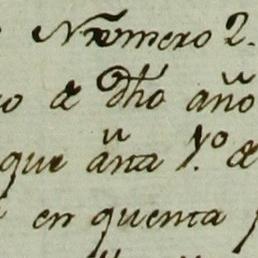 Numero 2.
o de dho año
que
en quenta